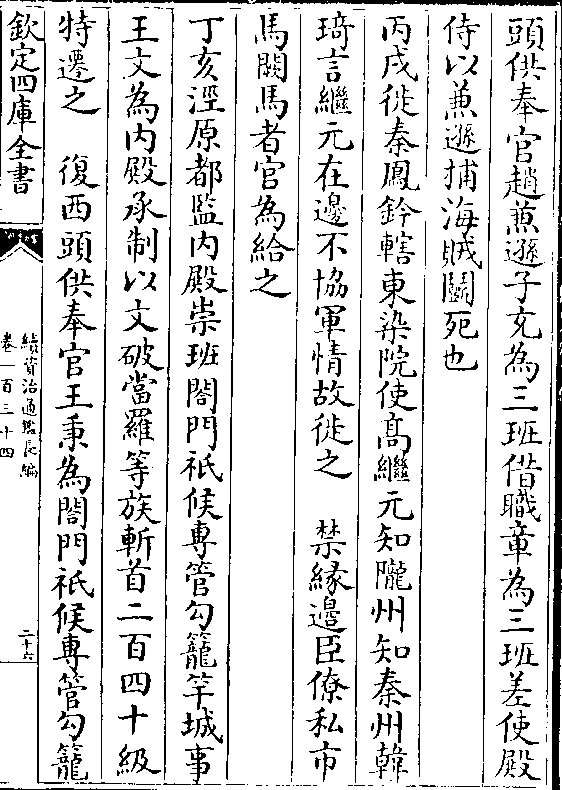 頭供奉官趙兼遜子充為三班借職章為三班差使殿
侍以兼遜捕海賊鬭死也
丙戌徙秦鳳鈐轄東染院使髙繼元知隴州知秦州韓
琦言繼元在邊不協軍情故徙之　禁緣邊臣僚私市
馬闕馬者官為給之
丁亥涇原都監内殿崇班閤門祇候專管勾籠竿城事
王文為内殿承制以文破當羅等族斬首二百四十級
特遷之　復西頭供奉官王秉為閤門祇候專管勾籠
欽定四庫全書
續資治通鑑長編
卷一百三十四
二十六